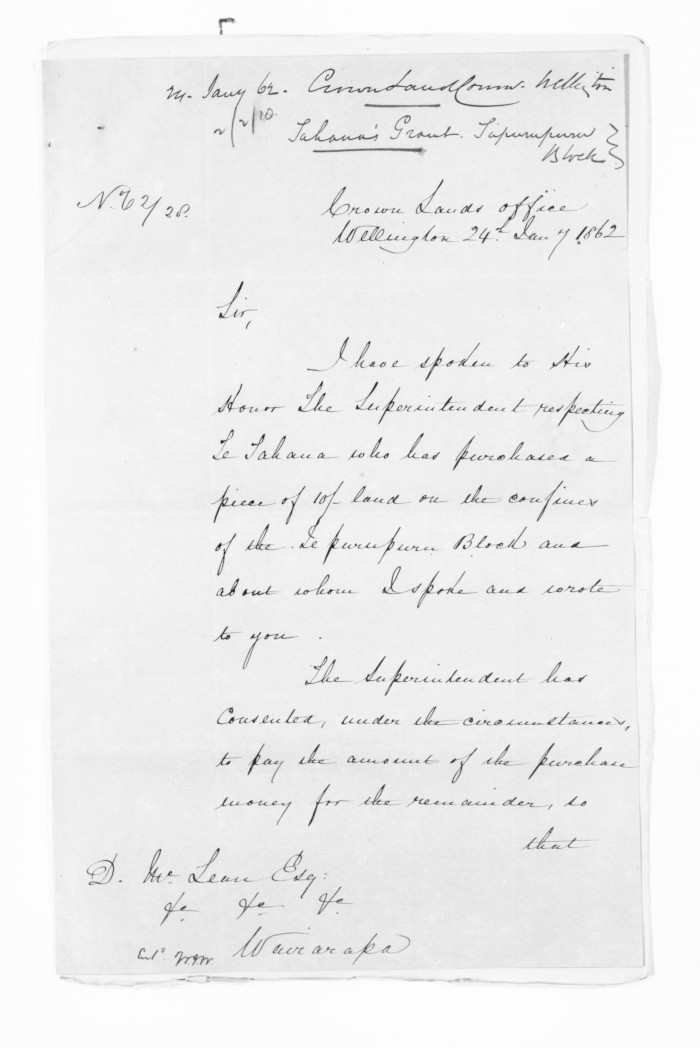 24. Jany 62. Crown Land Comr. Wellington
2/2/10.
Tahana's Grant. Tipurupuru
Block
No. 62/28.
Crown Lands office
Wellington 24th Jany 1862
Sir,
I have spoken to His
Honor The Superintendent respecting
Te Tahana who has purchased a
piece of 10/- land on the confines
of the Te purupuru Block and
about whom I spoke and wrote
to you.
The Superintendent has
Consented, under the circumstances,
to pay the amount of the purchase
money for the remainder, so
that
D. McLean Esq:
&c &c &c
Wairarapa